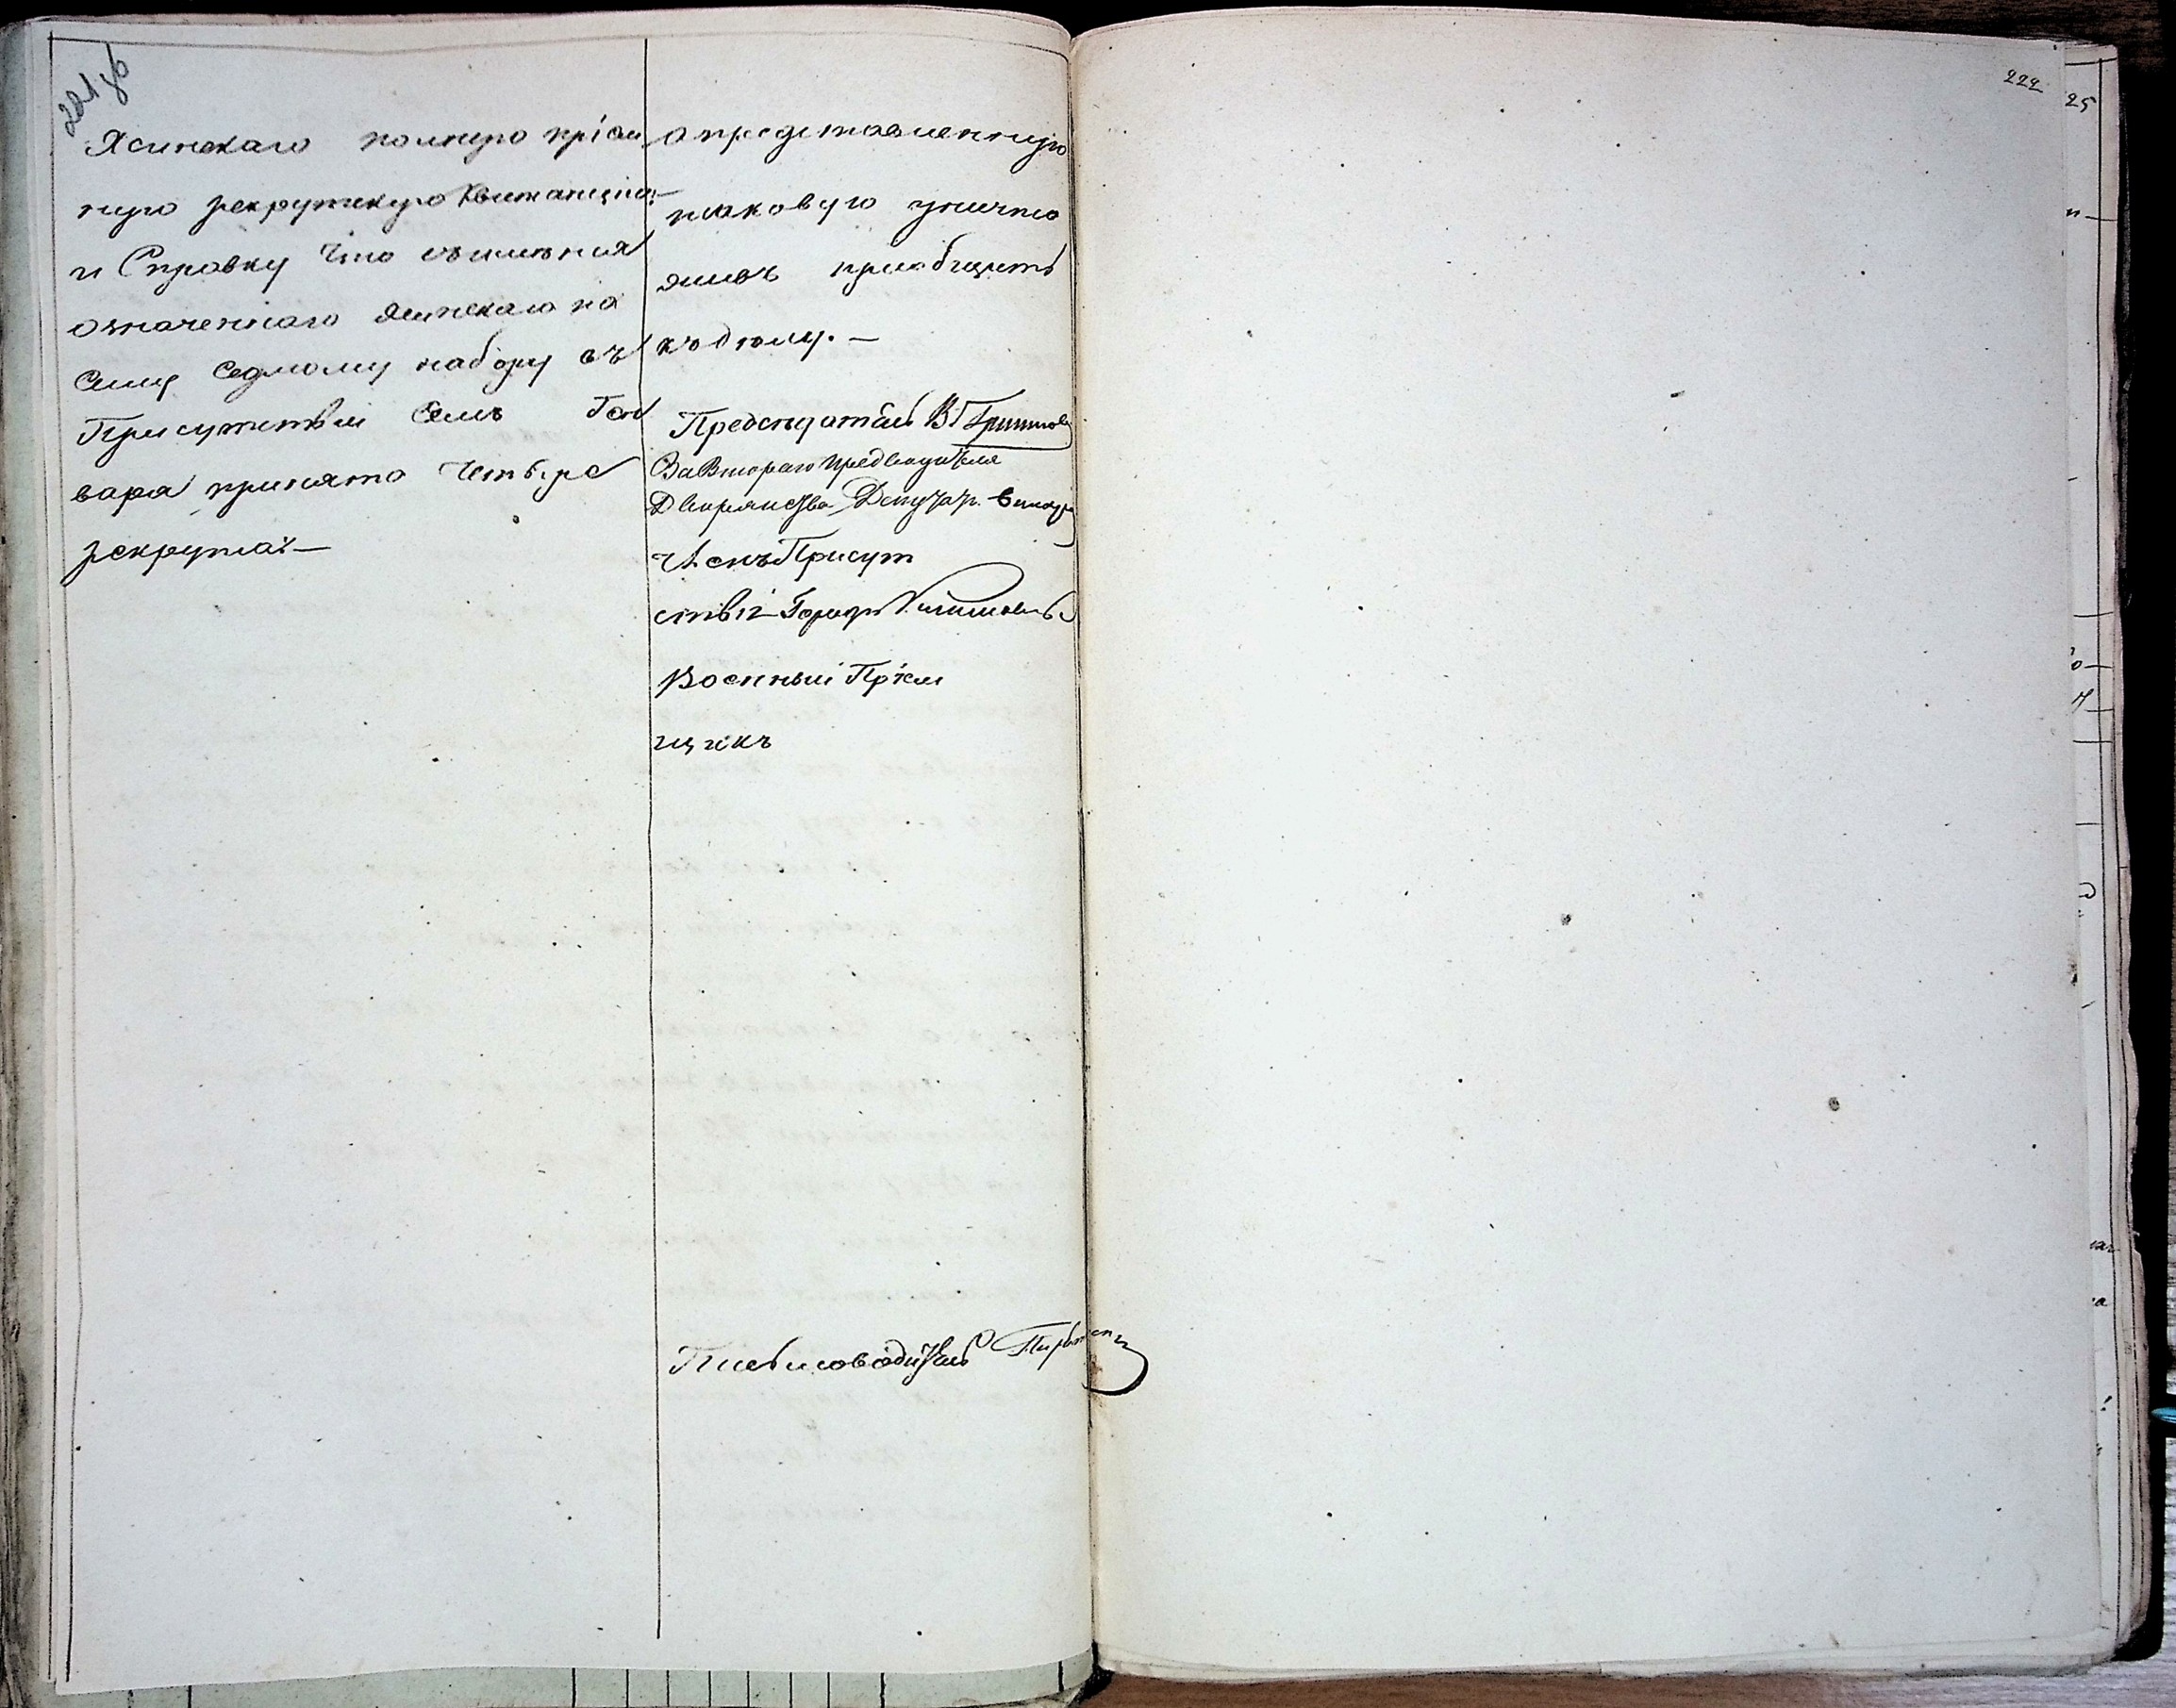 221 об
Ясинскаго полную пріем
ную рекрутскую квитанцію
и Справку что съ имѣнія
означеннаго Ясинскаго на
сему седмому набору въ
Присутствіи Семъ Ген
варя принято четыре
рекрута:—
а представленную
таковую уничто
живъ приобщить
къ дѣлу. —
Предсѣдатель
За Втораго предводителя
Дворянства Депутат
Членъ Присут
ствія
Военный Пріем
щикъ
Письмоводитель
222
25